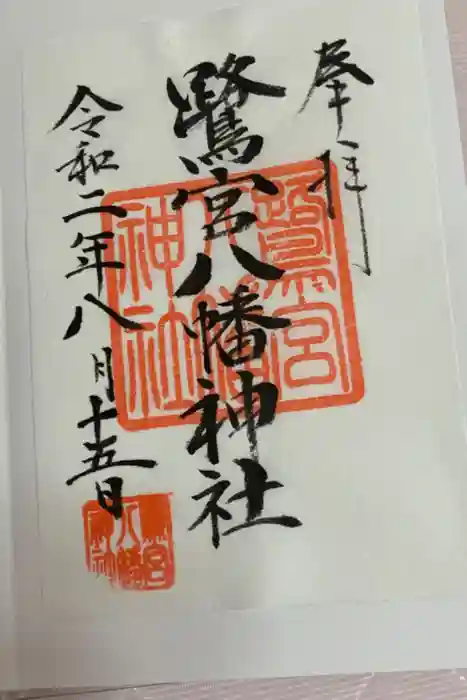 奉拝
鷺宮八幡神社
令和二年八月十五日
鷺宮
八幡
神社